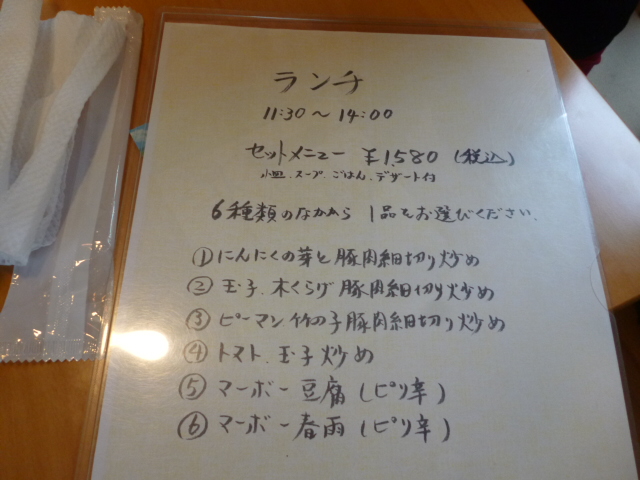 ランチ
11:30〜14:00
セットメニュー ¥1,580 (税込)
小皿.スープ.ごはん.デザート付
6種類のなかから 1品をお選びください.
①にんにくの芽と豚肉細切り炒め
②玉子.木くらげ豚肉細切り炒め
③ピーマン竹の子豚肉細切り炒め
④トマト.玉子炒め
⑤マーボー豆腐(ピリ辛)
⑥マーボー春雨(ピリ辛)